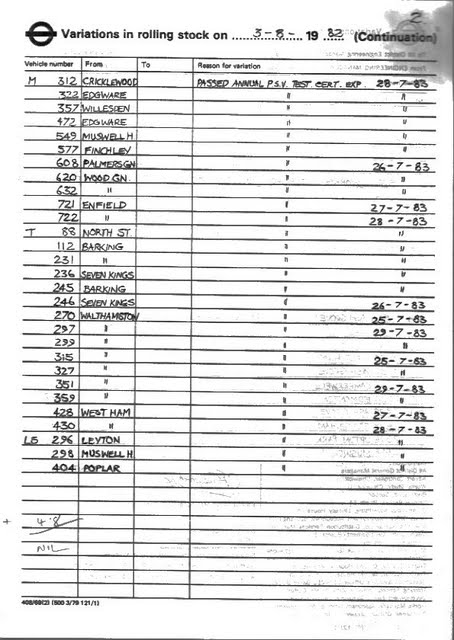 2
Variations in rolling stock on 3-8- 19 82 (Continuation)
Vehicle number From To Reason for variation
M 312 CRICKLEWOOD PASSED ANNUAL P.S.V. TEST CERT. EXP. 28-7-83
322 EDGWARE " "
357 WILLESDEN " "
472 EDGWARE " "
549 MUSWELL H. " "
577 FINCHLEY " "
608 PALMERS GN " 26-7-83
620 WOOD GN. " "
632 " " "
721 ENFIELD " 27-7-83
722 " " 28-7-83
T 88 NORTH ST. " "
112 BARKING " "
231 " " "
236 SEVEN KINGS " "
245 BARKING " "
246 SEVEN KINGS " 26-7-83
270 WALTHAMSTOW " 25-7-83
297 " " 29-7-83
299 " " "
315 " " 25-7-83
327 " " "
351 " " 29-7-83
359 " " "
428 WEST HAM " 27-7-83
430 " " 28-7-83
LS 296 LEYTON " "
298 MUSWELL H. " "
404 POPLAR " "
+ 4.8
NIL
408/69(2) (500 3/79 121/1)